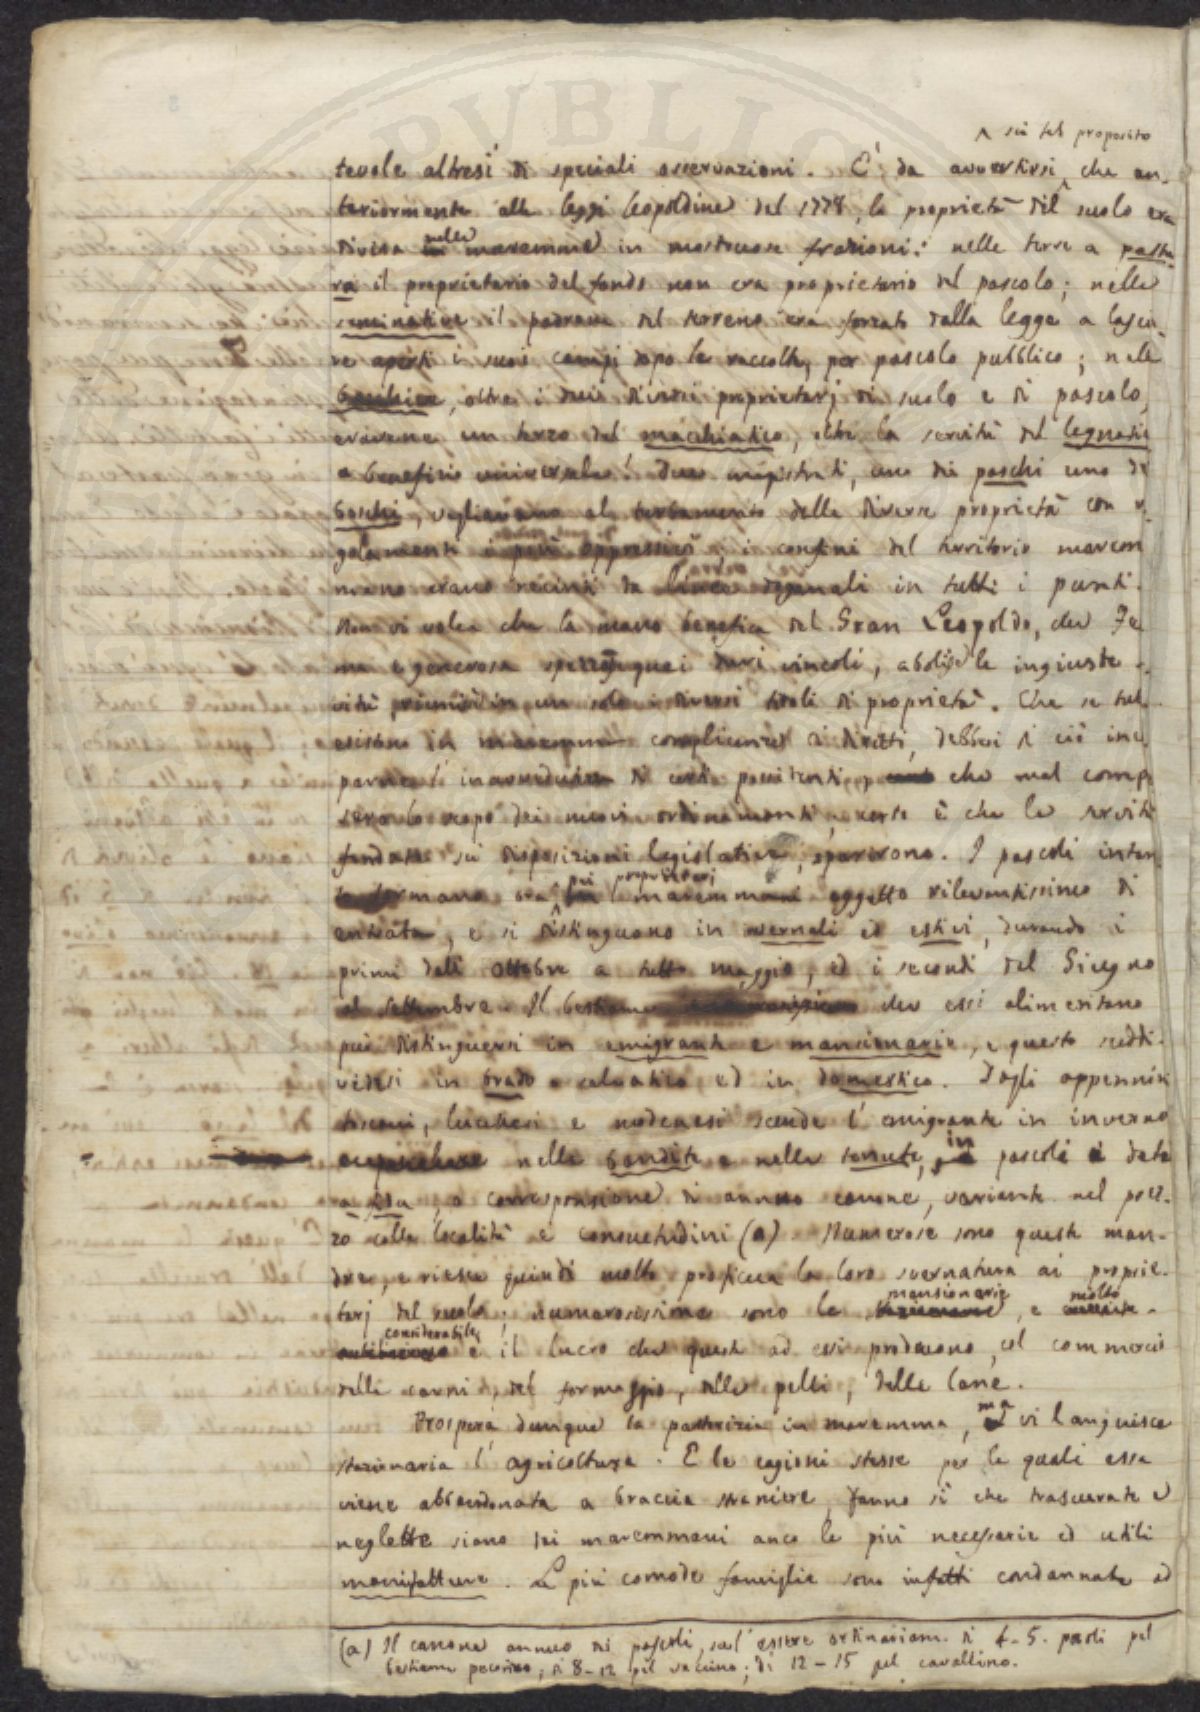 ^ su tal proposito
tevole altresì di speciali osservazioni. È da avvertirsi ^ che an-
teriormente alle leggi leopoldine del 1778, la proprietà del suolo era
divisa nelle maremme in mostruose frazioni: nelle terre a pastu-
ra il proprietario del fondo non era proprietario del pascolo; nelle
seminative il padrone del terreno era forzato dalla legge a lascia-
re aperti i suoi campi dopo le raccolte, per pascolo pubblico; nelle
boschive, oltre i due diversi proprietarj di suolo e di pascolo,
eravene un terzo del macchiatico, oltre la servitù del legnatico
a benefizio universale! Due magistrati, uno dei paschi uno dei
boschi, vegliavano al turbamento delle diverse proprietà con re-
golamenti i più oppressivi; i confini del territorio marem
mano erano recinti da linee doganali in tutti i punti.
Non vi volea che la mano benefica del Gran Leopoldo, che fer
ma e generosa spezzò quei duri vincoli, abolì le ingiuste
vitù, riunì in un solo i diversi titoli di proprietà. Che se tut
esistono in maremma complicanze di diritti, debbesi di ciò inc
parne l'inavvedutezza di certi possidenti, che mal comp
sero lo scopo dei nuovi ordinamenti, certo è che le servitù
fondate su disposizioni legislative, sparirono. I pascoli intan
to formano ora pei proprietarj maremmani oggetto rilevantissimo di
entrata, e si distinguono in vernali ed estivi, durando i
primi dall'ottobre a tutto maggio, ed i secondi dal Giugno
al settembre. Il bestiame che essi alimentano
può distinguersi in emigrante e mansionario, e questo suddi-
videsi in brado o salvatico ed in domestico. Dagli appennini
toscani, lucchesi e modenesi scende l'emigrante in inverno
nelle bandite e nelle tenute, in pascoli dati
a fida, a corresponsione di annuo canone, variante nel prez-
zo colla località e consuetudini (a) Numerose sono queste man-
dre, e riesce quindi molto proficua la loro svernatura ai proprie-
tarj del suolo; numerosissime sono le mansionarie, e molto
considerabile è il lucro che queste ad essi producono, col commercio
delle carni, del formaggio, delle pelli, delle lane.
Prospera dunque la pastorizia in maremma, ma vi languisce
stazionaria l'agricoltura. E le cagioni stesse per le quali essa
viene abbandonata a braccia straniere, fanno sì che trascurate e
neglette siano dai maremmani anco le più necessarie ed utili
manifatture. Le più comode famiglie sono infatti condannate ad
(a) Il canone annuo dei pascoli, suol essere ordinariam. di 4-5. paoli pel
bestiame pecorino; di 8-12 pel vaccino; di 12-15 pel cavallino.